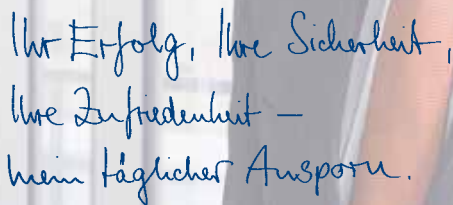 Ihr Erfolg, Ihre Sicherheit,
Ihre Zufriedenheit –
mein täglicher Ansporn.